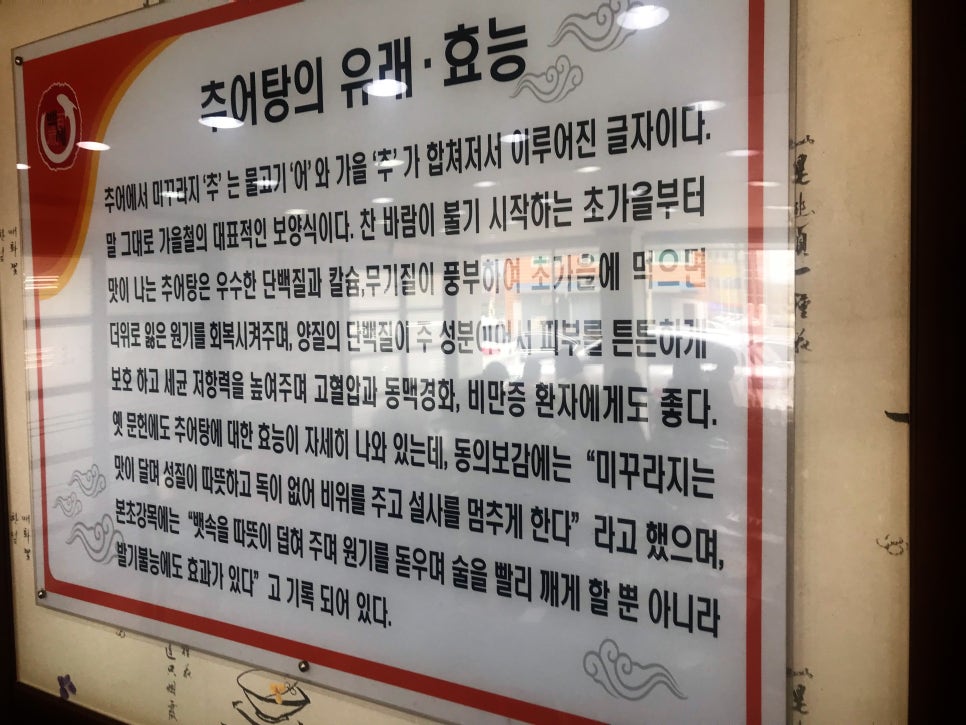 추어탕의 유래·효능
추어에서 미꾸라지 ‘추’ 는 물고기 ‘어’ 와 가을 ‘추’ 가 합쳐저서 이루어진 글자이다.
말 그대로 가을철의 대표적인 보양식이다. 찬 바람이 불기 시작하는 초가을부터
맛이 나는 추어탕은 우수한 단백질과 칼슘,무기질이 풍부하여 초가을에 먹으면
더위로 잃은 원기를 회복시켜주며, 양질의 단백질이 주 성분이어서 피부를 튼튼하게
보호 하고 세균 저항력을 높여주며 고혈압과 동맥경화, 비만증 환자에게도 좋다.
옛 문헌에도 추어탕에 대한 효능이 자세히 나와 있는데, 동의보감에는 “미꾸라지는
맛이 달며 성질이 따뜻하고 독이 없어 비위를 주고 설사를 멈추게 한다” 라고 했으며,
본초강목에는 “뱃속을 따뜻이 덥혀 주며 원기를 돋우며 술을 빨리 깨게 할 뿐 아니라
발기불능에도 효과가 있다” 고 기록 되어 있다.